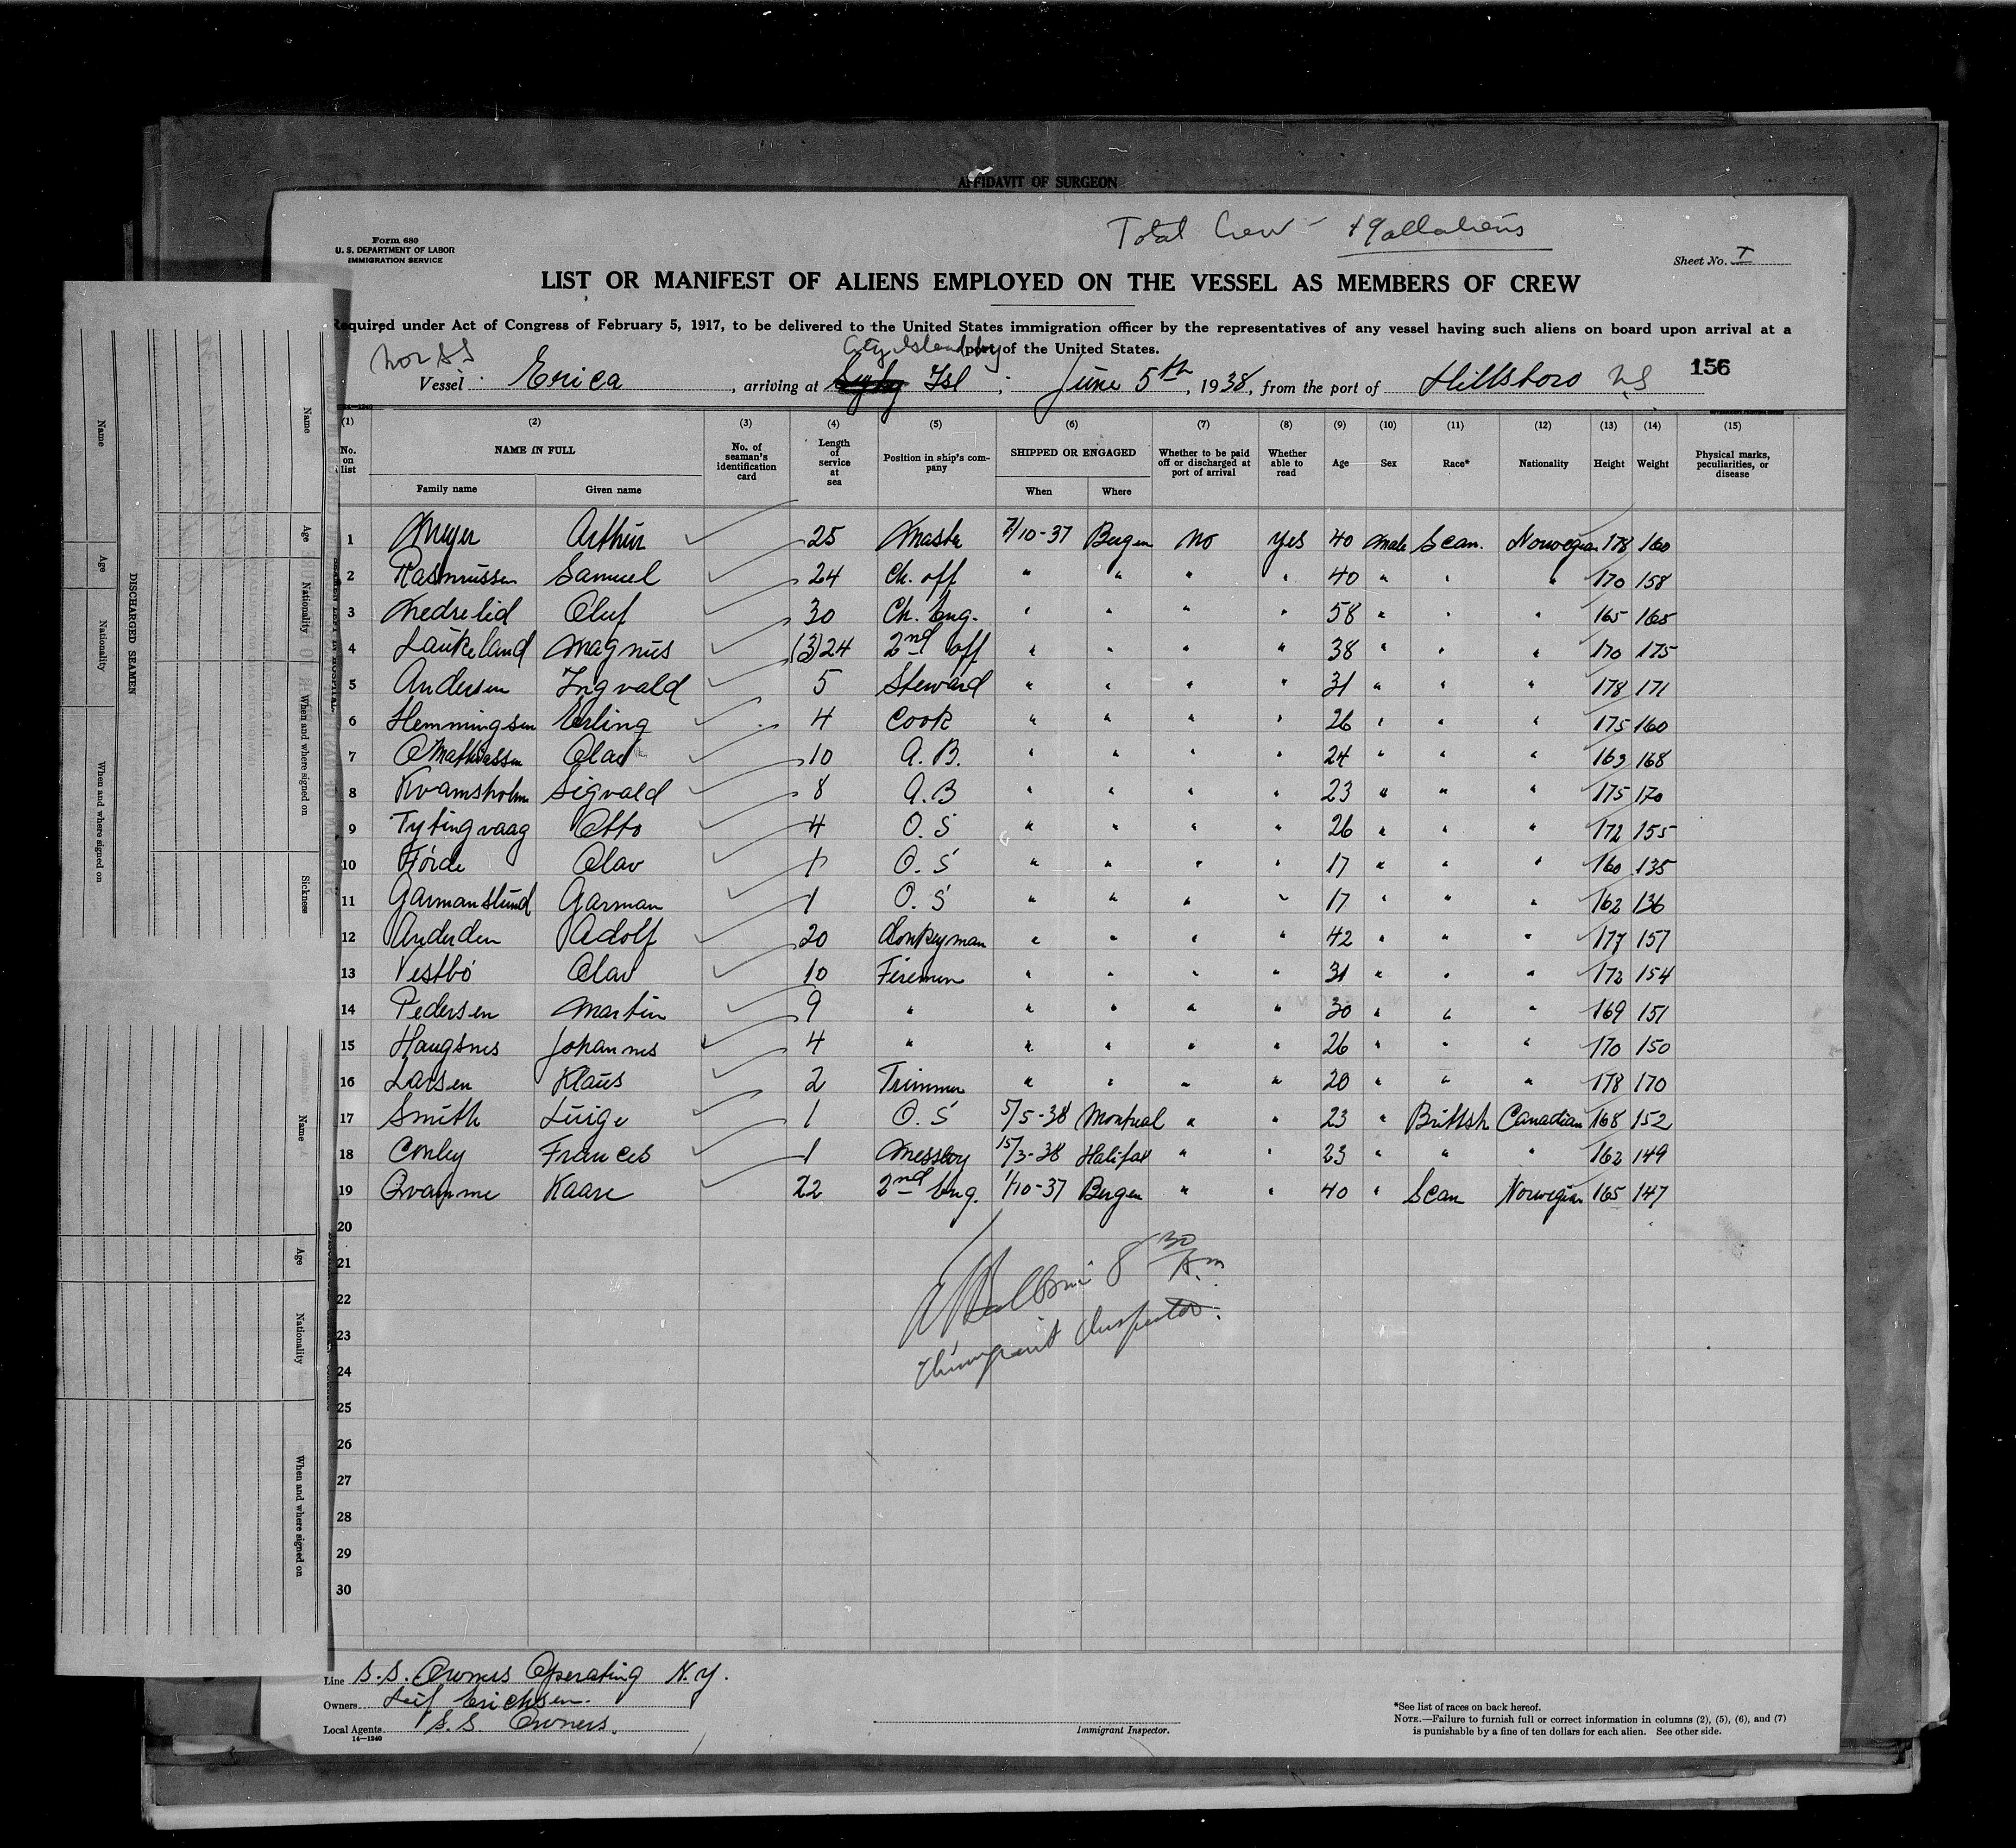 AFFIDAVIT OF SURGEON
Total Crew - 19 all aliens
Form 680
U. S. DEPARTMENT OF LABOR
IMMIGRATION SERVICE
Sheet No. I
LIST OR MANIFEST OF ALIENS EMPLOYED ON THE VESSEL AS MEMBERS OF CREW
Required under Act of Congress of February 5, 1917, to be delivered to the United States immigration officer by the representatives of any vessel having such aliens on board upon arrival at a
port of the United States.
Nor SS City Island NY
Vessel Erica, arriving at Isl; June 5th, 1938, from the port of Hillsboro 156
14—1240
(1) (2) (3) (4) (5) (6) (7) (8) (9) (10) (11) (12) (13) (14) (15)
No. on list NAME IN FULL No. of seaman's identification card Length of service at sea Position in ship's company SHIPPED OR ENGAGED Whether to be paid off or discharged at port of arrival Whether able to read Age Sex Race* Nationality Height Weight Physical marks, peculiarities, or disease
Family name Given name When Where
1 Meyer Arthur 25 Master 7/10-37 Bergen No Yes 40 Male Scan. Norwegian 178 160
2 Rasmussen Samuel 24 Ch. off " " " " 40 " " " 170 158
3 Medrelid Oluf 30 Ch. Eng. " " " " 58 " " " 165 165
4 Laukeland Magnus (3)24 2nd off " " " " 38 " " " 170 175
5 Andersen Ingvald 5 Steward " " " " 31 " " " 178 171
6 Hemmingsen Erling 4 Cook " " " " 26 " " " 175 160
7 Mathiassen Olav 10 A. B. " " " " 24 " " " 163 168
8 Kvamsholm Sigvald 8 A.B " " " " 23 " " " 175 170
9 Tytingvaag Otto 4 O. S " " " " 26 " " " 172 155
10 Förde Olav 1 O. S " " " " 17 " " " 160 135
11 Garmanslund Garman 1 O. S " " " " 17 " " " 162 136
12 Anderden Adolf 20 Donkeyman " " " " 42 " " " 177 157
13 Vestbö Olav 10 Firemen " " " " 31 " " " 172 154
14 Pedersen Martin 9 " " " " " 30 " " " 169 151
15 Haugsnes Johannes 4 " " " " " 26 " " " 170 150
16 Larsen Klaus 2 Trimmer " " " " 20 " " " 178 170
17 Smith Luige 1 O. S 5/5-38 Montreal " " 23 " Brittsh Canadian 168 152
18 Conley Frances 1 Messboy 15/3-38 Halifax " " 23 " " " 162 149
19 Qvamme Kaare 22 2nd Eng. 1/10-37 Bergen " " 40 " Scan Norwegian 165 147
20
21
22
23
24
25
26
27
28
29
30
8 30 A.m
Immigrant Inspector.
Line S.S. Owners Operating N.Y.
Owners Leif Erichsen.
Local Agents S.S. Owners.
14—1240
Immigrant Inspector.
*See list of races on back hereof.
NOTE.—Failure to furnish full or correct information in columns (2), (5), (6), and (7)
is punishable by a fine of ten dollars for each alien. See other side.
DISCHARGED SEAMEN
Name Age Nationality When and where signed on
Name Age Nationality When and where signed on Sickness
Name Age Nationality When and where signed on